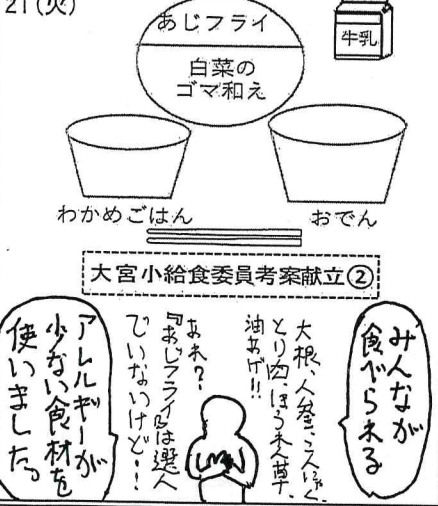 21(火)
あじフライ
牛乳
白菜の
ゴマ和え
わかめごはん
おでん
大宮小給食委員考案献立②
みんなが
食べられる
大根、人参、こんにゃく、
とり肉、ほうれん草、
油あげ!!
あれ?
『あじフライ』は選ん
でいないけど…!
アレルギーが
少ない食材を
使いました。